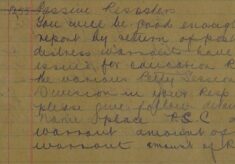 You will be good enough
report by return of post
distress warrants have
issued for education R
the various Petty Session
Division in your
please give follow
name & place
warrant amount of
warrant amount of